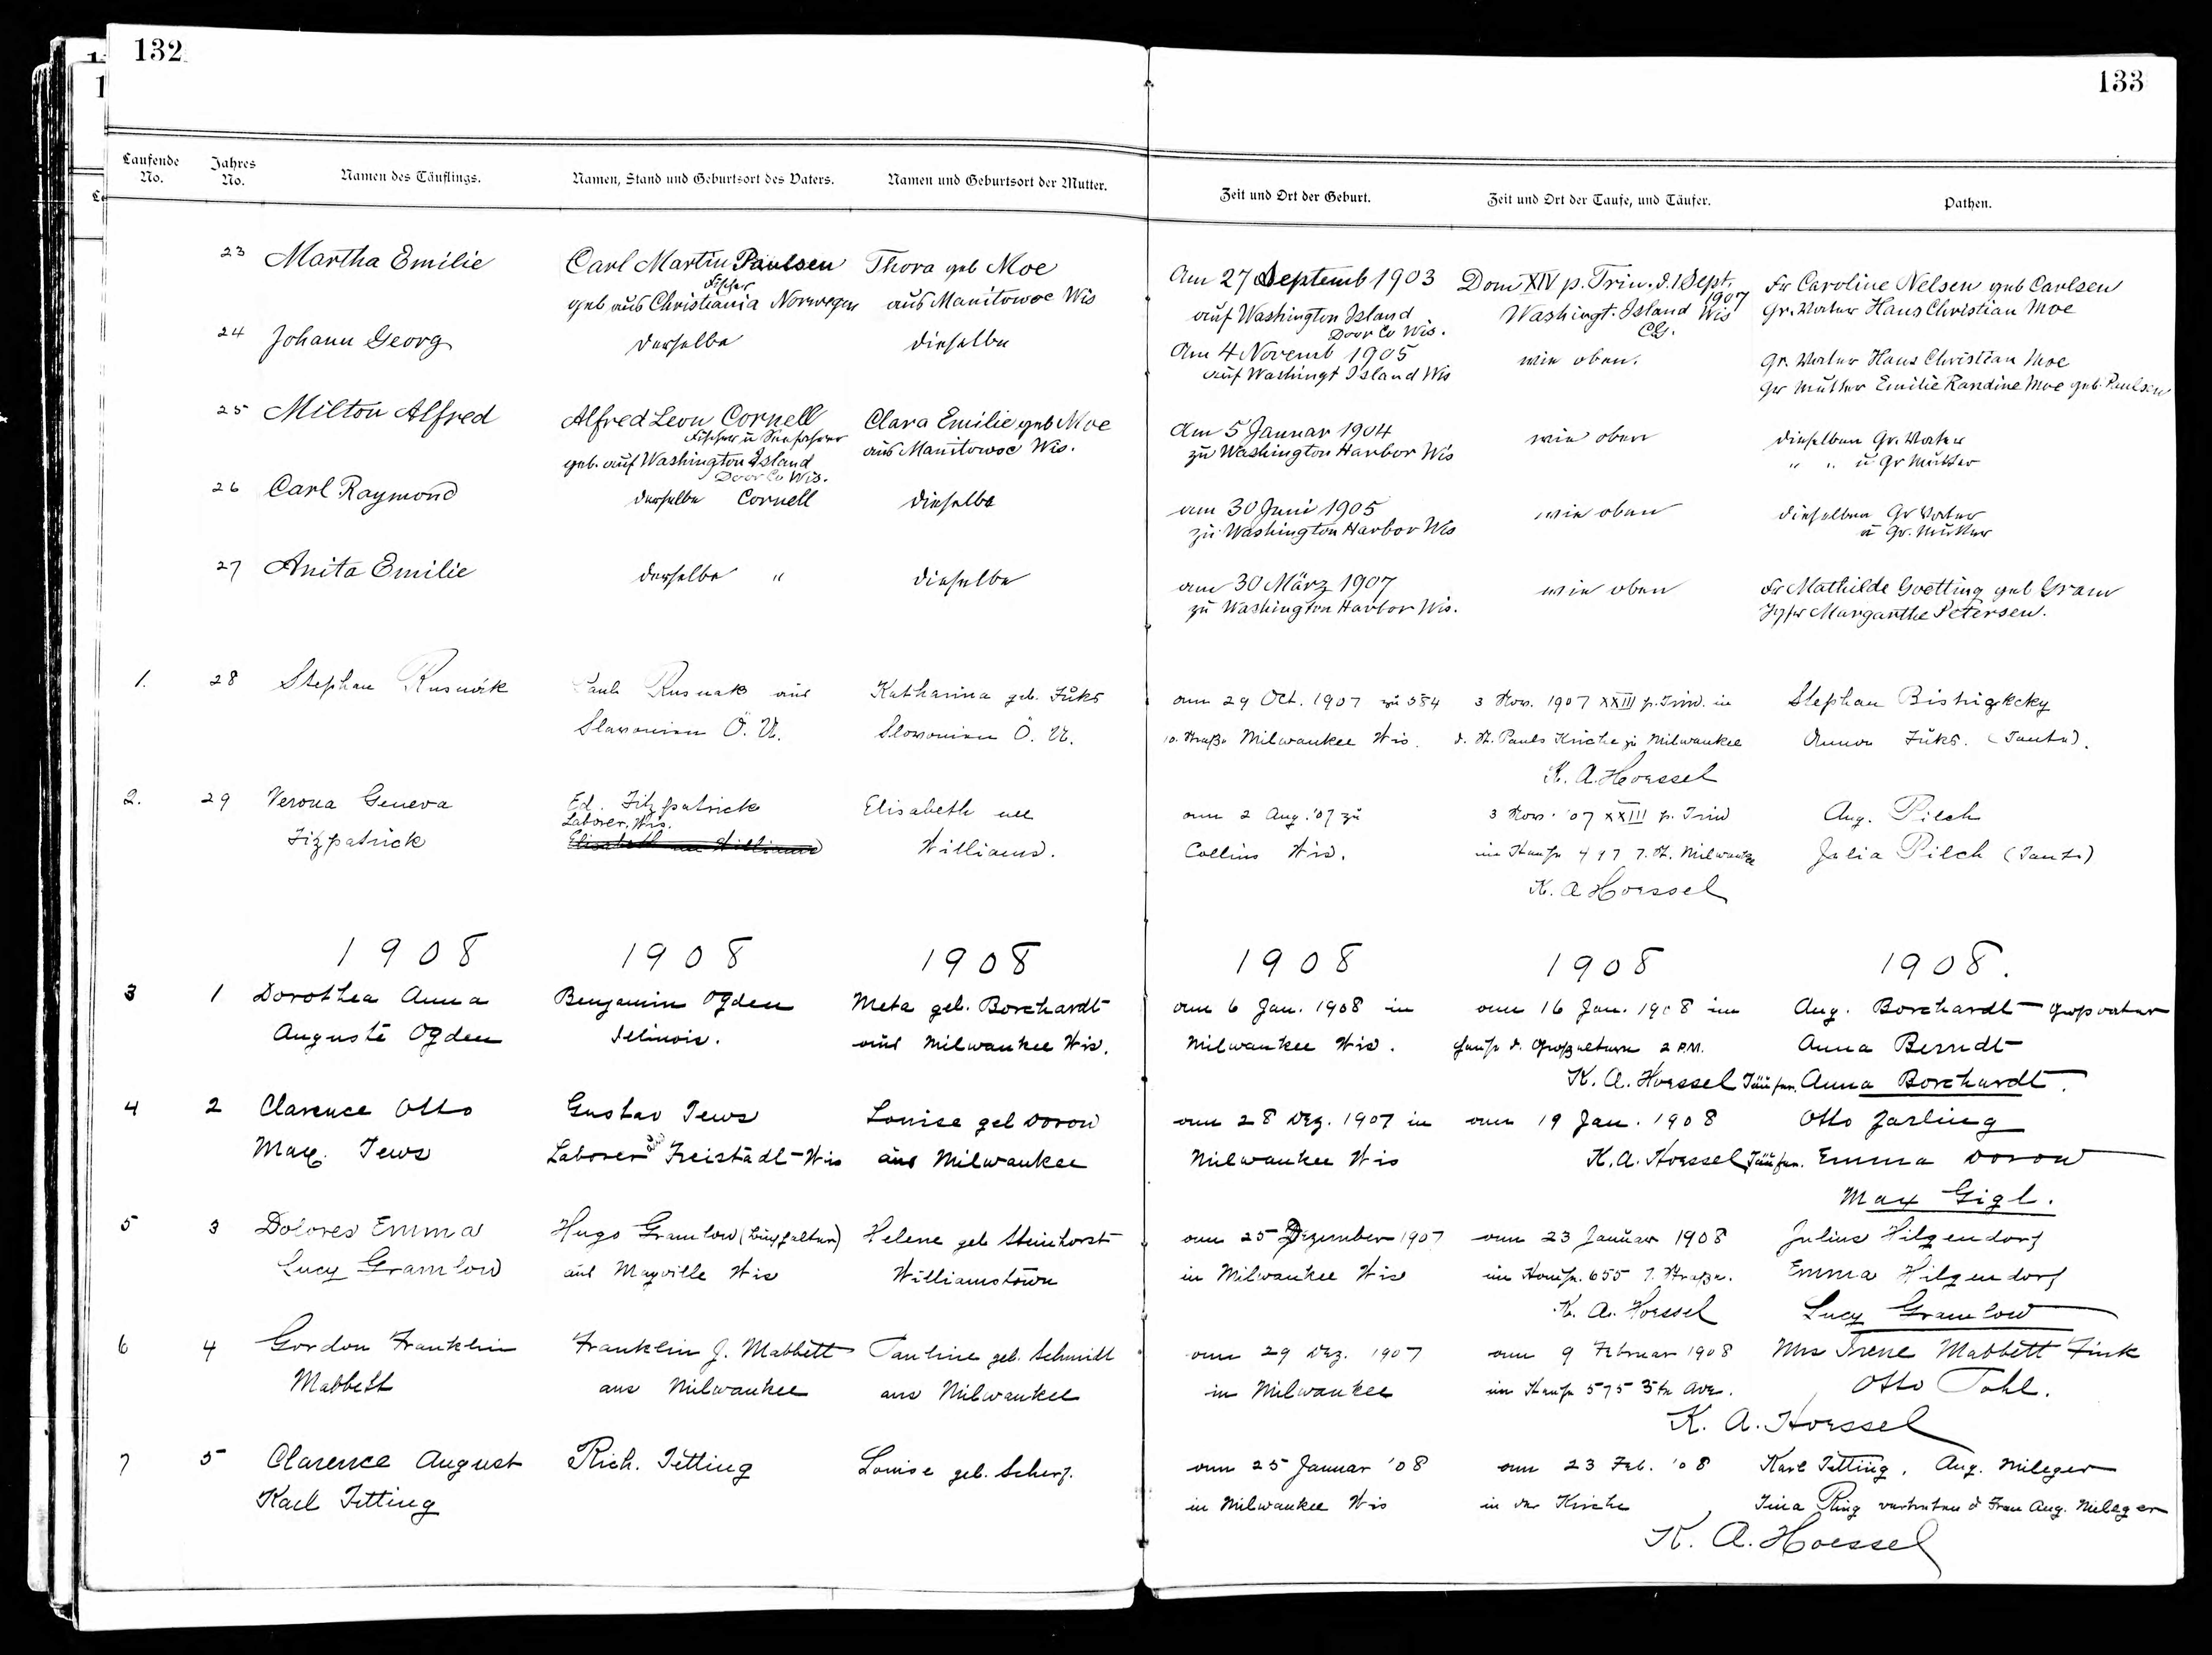 132
133
Laufende No.
Jahres No.
Namen des Täuflings.
Namen, Stand und Geburtsort des Vaters.
Namen und Geburtsort der Mutter.
Zeit und Ort der Geburt.
Zeit und Ort der Taufe, und Täufer.
Pathen.
23 Martha Emilie
Carl Martin Paulsen
Fischer
geb aus Christiania Norwegen
Thora geb Moe
aus Manitowoc Wis
Am 27 Septemb 1903
auf Washington Island
Door Co Wis.
Dom XIV p. Trin. d. 1 Sept. 1907
Washingt. Island Wis
CG.
Fr Caroline Nelsen geb Carlsen
Gr. Vater Hans Christian Moe
24 Johann Georg
derselbe
dieselbe
Am 4 Novemb 1905
auf Washingt Island Wis
wie oben.
Gr. Vater Hans Christian Moe
Gr Mutter Emilie Randine Moe geb. Paulsen
25 Milton Alfred
Alfred Leon Cornell
Fischer u Seefahrer
geb. auf Washington Island
Door Co Wis.
Clara Emilie geb Moe
aus Manitowoc Wis.
Am 5 Januar 1904
zu Washington Harbor Wis
wie oben
dieselben Gr. Vater
" " u Gr Mutter
26 Carl Raymond
derselbe Cornell
dieselbe
am 30 Juni 1905
zu Washington Harbor Wis
wie oben
dieselben Gr Vater
u Gr. Mutter
27 Anita Emilie
derselbe "
dieselbe
am 30 März 1907
zu Washington Harbor Wis.
wie oben
Fr Mathilde Goetting geb Gram
Margarithe Petersen.
1. 28 Stephan Rusnak
Paul Rusnak aus
Slavonien Ö. U.
Katharina geb. Fuks
Slovonien Ö. U.
am 29 Oct. 1907 zu 584
10. Straße Milwaukee Wis.
3 Nov. 1907 XXIII p. Trin. in
d. St. Pauls Kirche zu Milwaukee
K. A. Hoessel
Stephan
Fuks. (Tante).
2. 29 Verona Geneva
Fizpatrick
Ed. Fitzpatrick
Laborer, Wis.
Elisabeth nee Williams
Elisabeth nee
Williams.
am 2 Aug. '07 zu
Collins Wis.
3 Nov. '07 XXIII p. Trin
im Hause 497 7. St. Milwaukee
K. A Hoessel
Aug. Pilch
Julia Pilch (Tante)
1908 1908 1908 1908 1908 1908.
3 1 Dorothea Anna
Auguste Ogden
Benjamin Ogden
Illinois.
Meta geb. Borchardt
aus Milwaukee Wis.
am 6 Jan. 1908 in
Milwaukee Wis.
am 16 Jan. 1908 im
Hause d. Großeltern 2 P.M.
K. A. Hoessel Täufer.
Aug. Borchardt Großvater
Anna Berndt
Anna Borchardt.
4 2 Clarence Otto
Max. Tews
Gustav Tews
Laborer aus Freistadt Wis
Louise geb Dorow
aus Milwaukee
am 28 Dez. 1907 in
Milwaukee Wis
am 19 Jan. 1908
K. A. Hoessel, Täufer.
Otto Zarling
Emma Dorow
Max Gigl.
5 3 Dolores Emma
Lucy Gramlow
Hugo Gramlow (Buchhalter)
aus Mayville Wis
Helene geb Steinhorst
Williamstown
am 25 Dezember 1907
in Milwaukee Wis
am 23 Januar 1908
im Hause. 655 7. Straße.
K. A. Hoessel
Julius Hilgendorf
Emma Hilgendorf
Lucy Gramlow
6 4 Gordon Franklin
Mabbett
Franklin J. Mabbett
aus Milwaukee
Pauline geb. Schmidt
aus Milwaukee
am 29 Dez. 1907
in Milwaukee
am 9 Februar 1908
im Hause 575 3te Ave.
Mrs Irene Mabbett Fink
Otto Pohl.
K. A. Hoessel
7 5 Clarence August
Karl Tetting
Rich. Tetting
Louise geb. Scherf.
am 25 Januar '08
in Milwaukee Wis
am 23 Feb. '08
in der Kirche
Karl Tetting, Aug. Mileger
Tina Ring vertreten d Frau Aug. Mileger
K. A. Hoessel